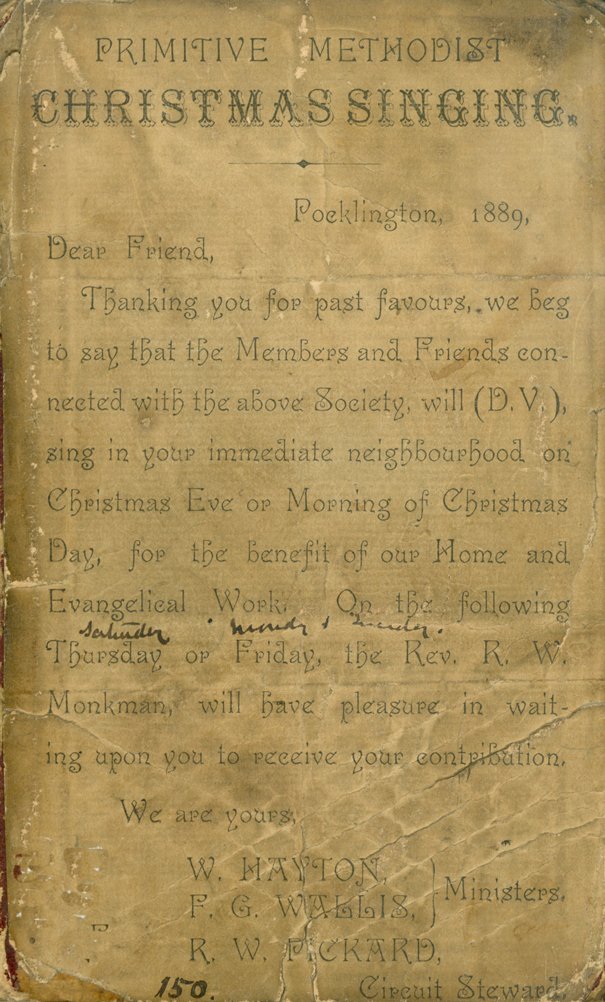 PRIMITIVE METHODIST
CHRISTMAS SINGING.
Pocklington, 1889,
Dear Friend,
Thanking you for past favours, we beg
to say that the Members and Friends con-
nected with the above Society, will (D.V.),
sing in your immediate neighbourhood on
Christmas Eve or Morning of Christmas
Day, for the benefit of our Home and
Evangelical Work. On the following
Saturday
Thursday or Friday, the Rev. R. W.
Monkman, will have pleasure in wait-
ing upon you to receive your contribution.
We are yours,
W. HAYTON,
F. G. WALLIS,
Ministers.
R. W. PICKARD,
150. Circuit Steward